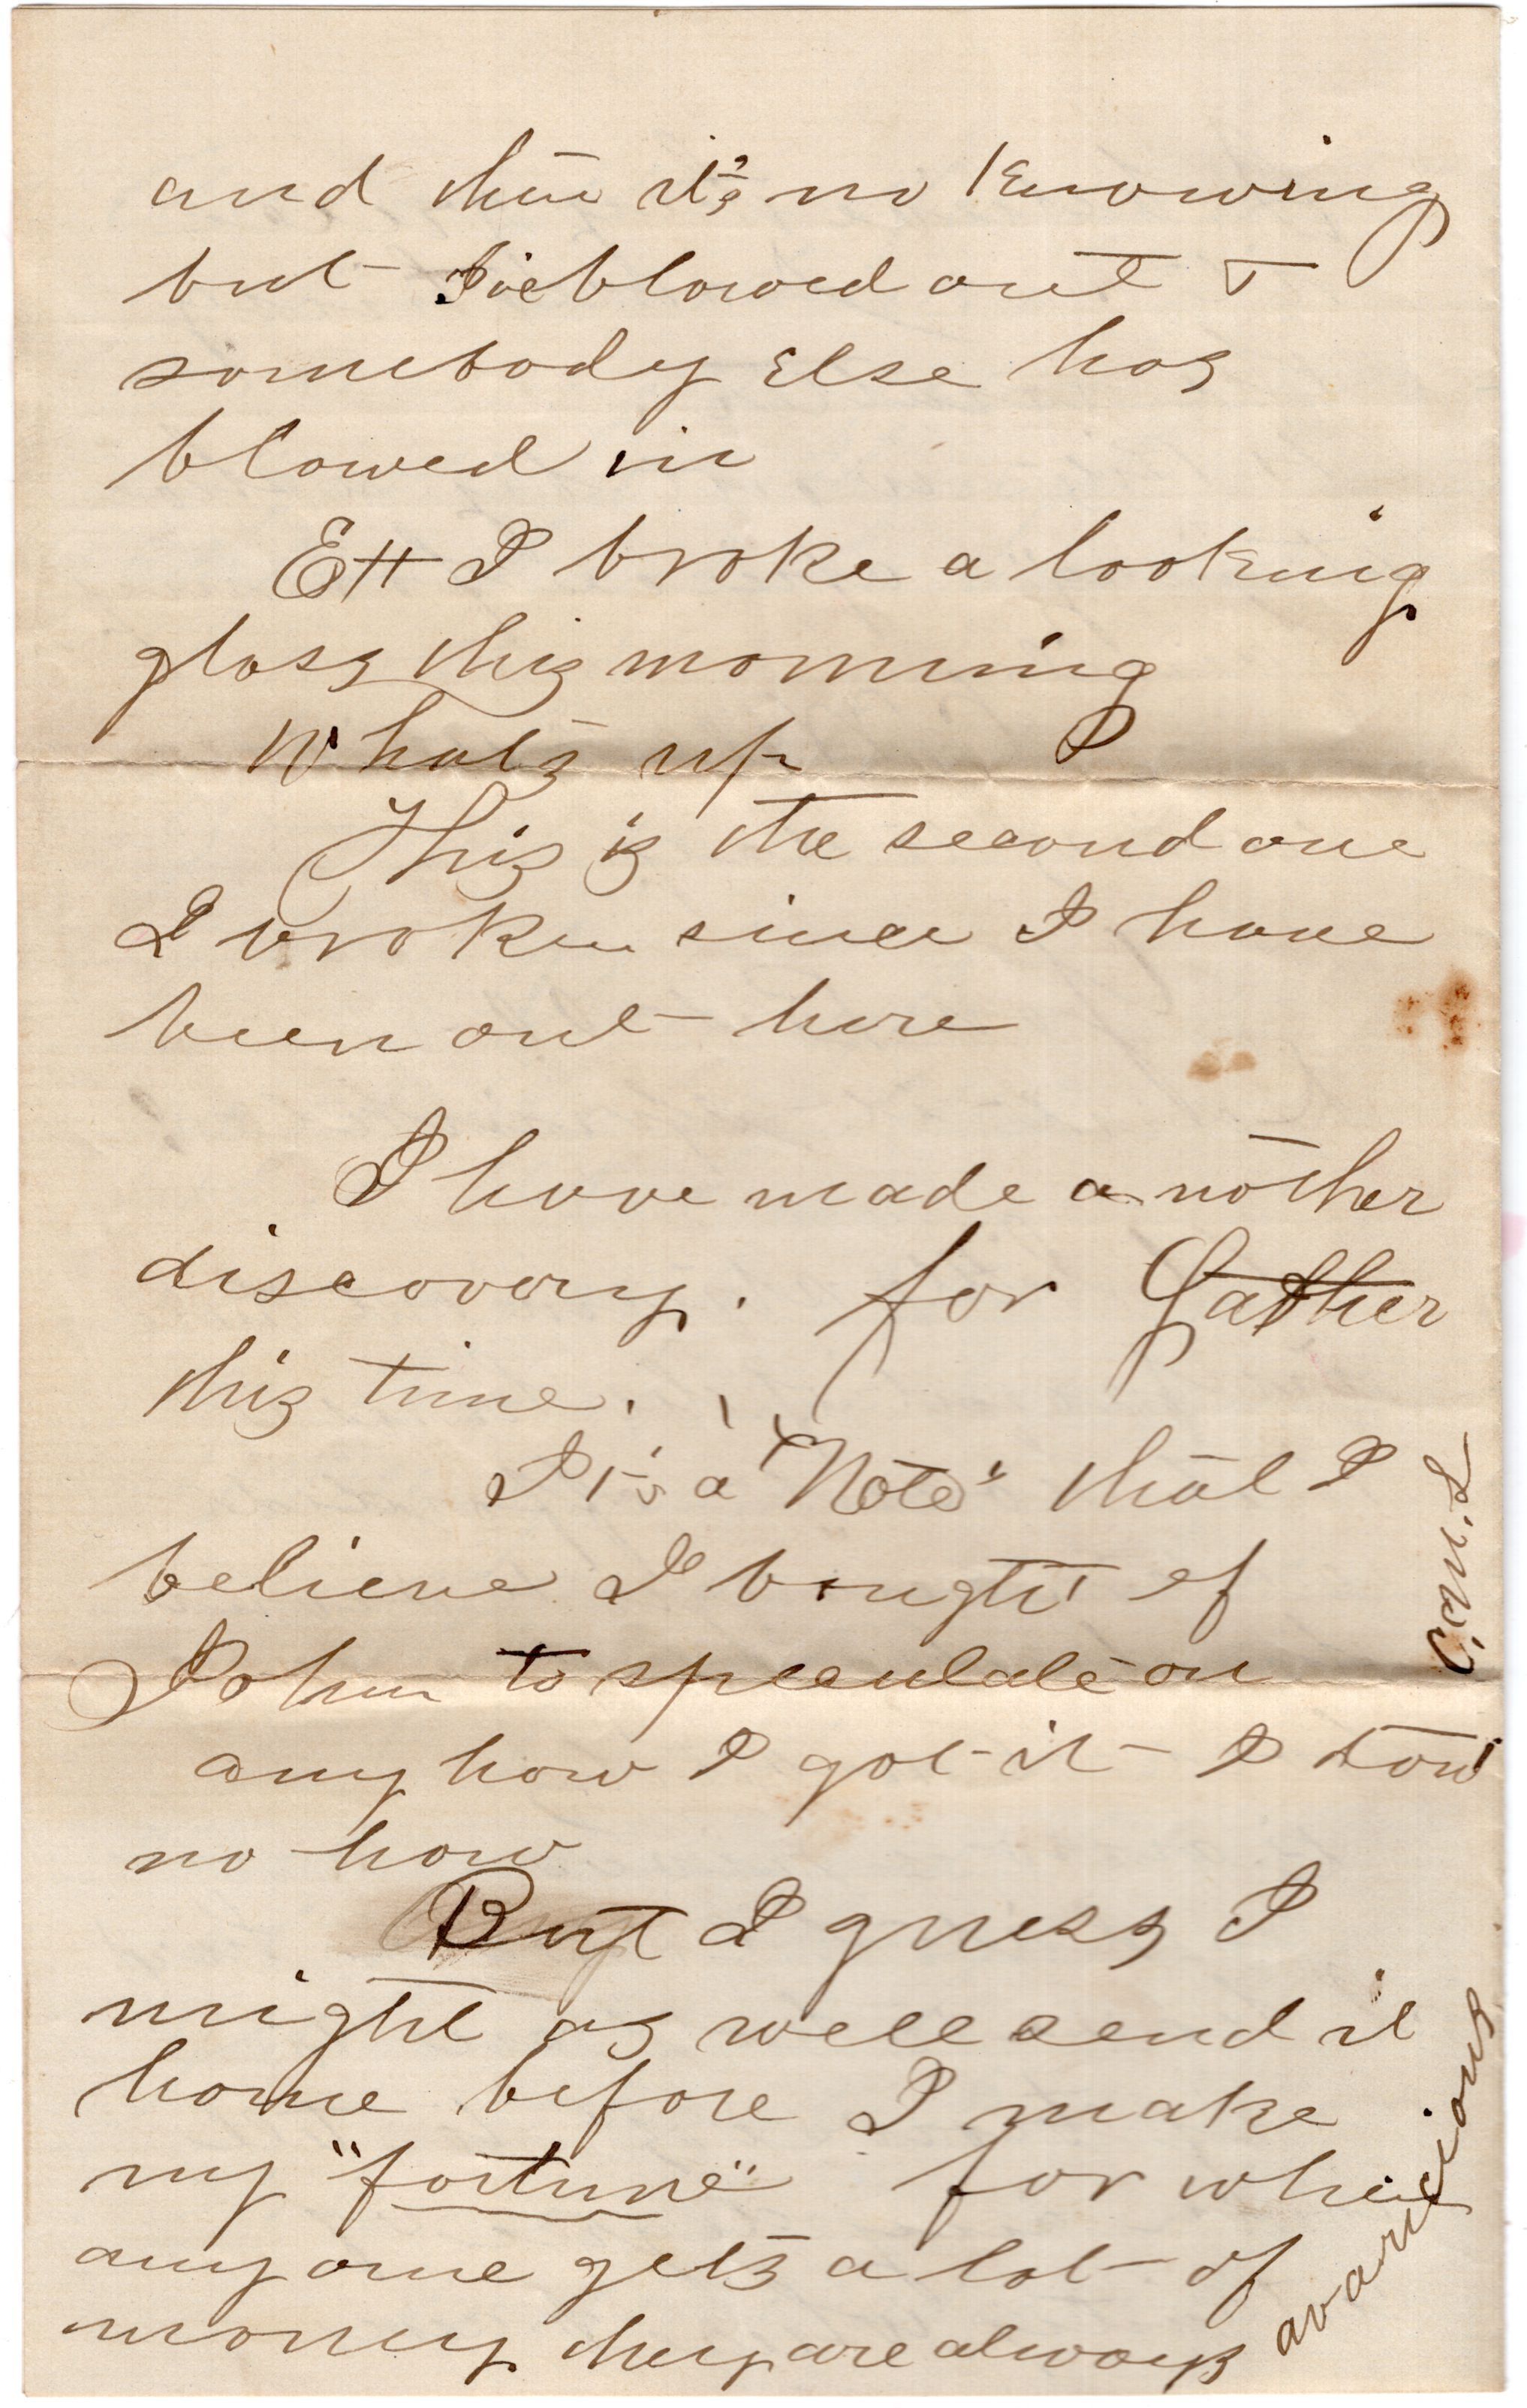 and then it's no knowing
but I've blowed out &
somebody Else has
blowed in
Ett I broke a looking
glass this morning
What's up
This is the second one
I broken since I have
been out here
I have made a nother
discovery. for Father
this time.
It's a "Note" that I
believe I bought of
John to speculate on
any how I got it I don't
no how
But I guess I
might as well send it
home before I make
my "fortune" for when
any one gets a lot of
money they are always
avaricious